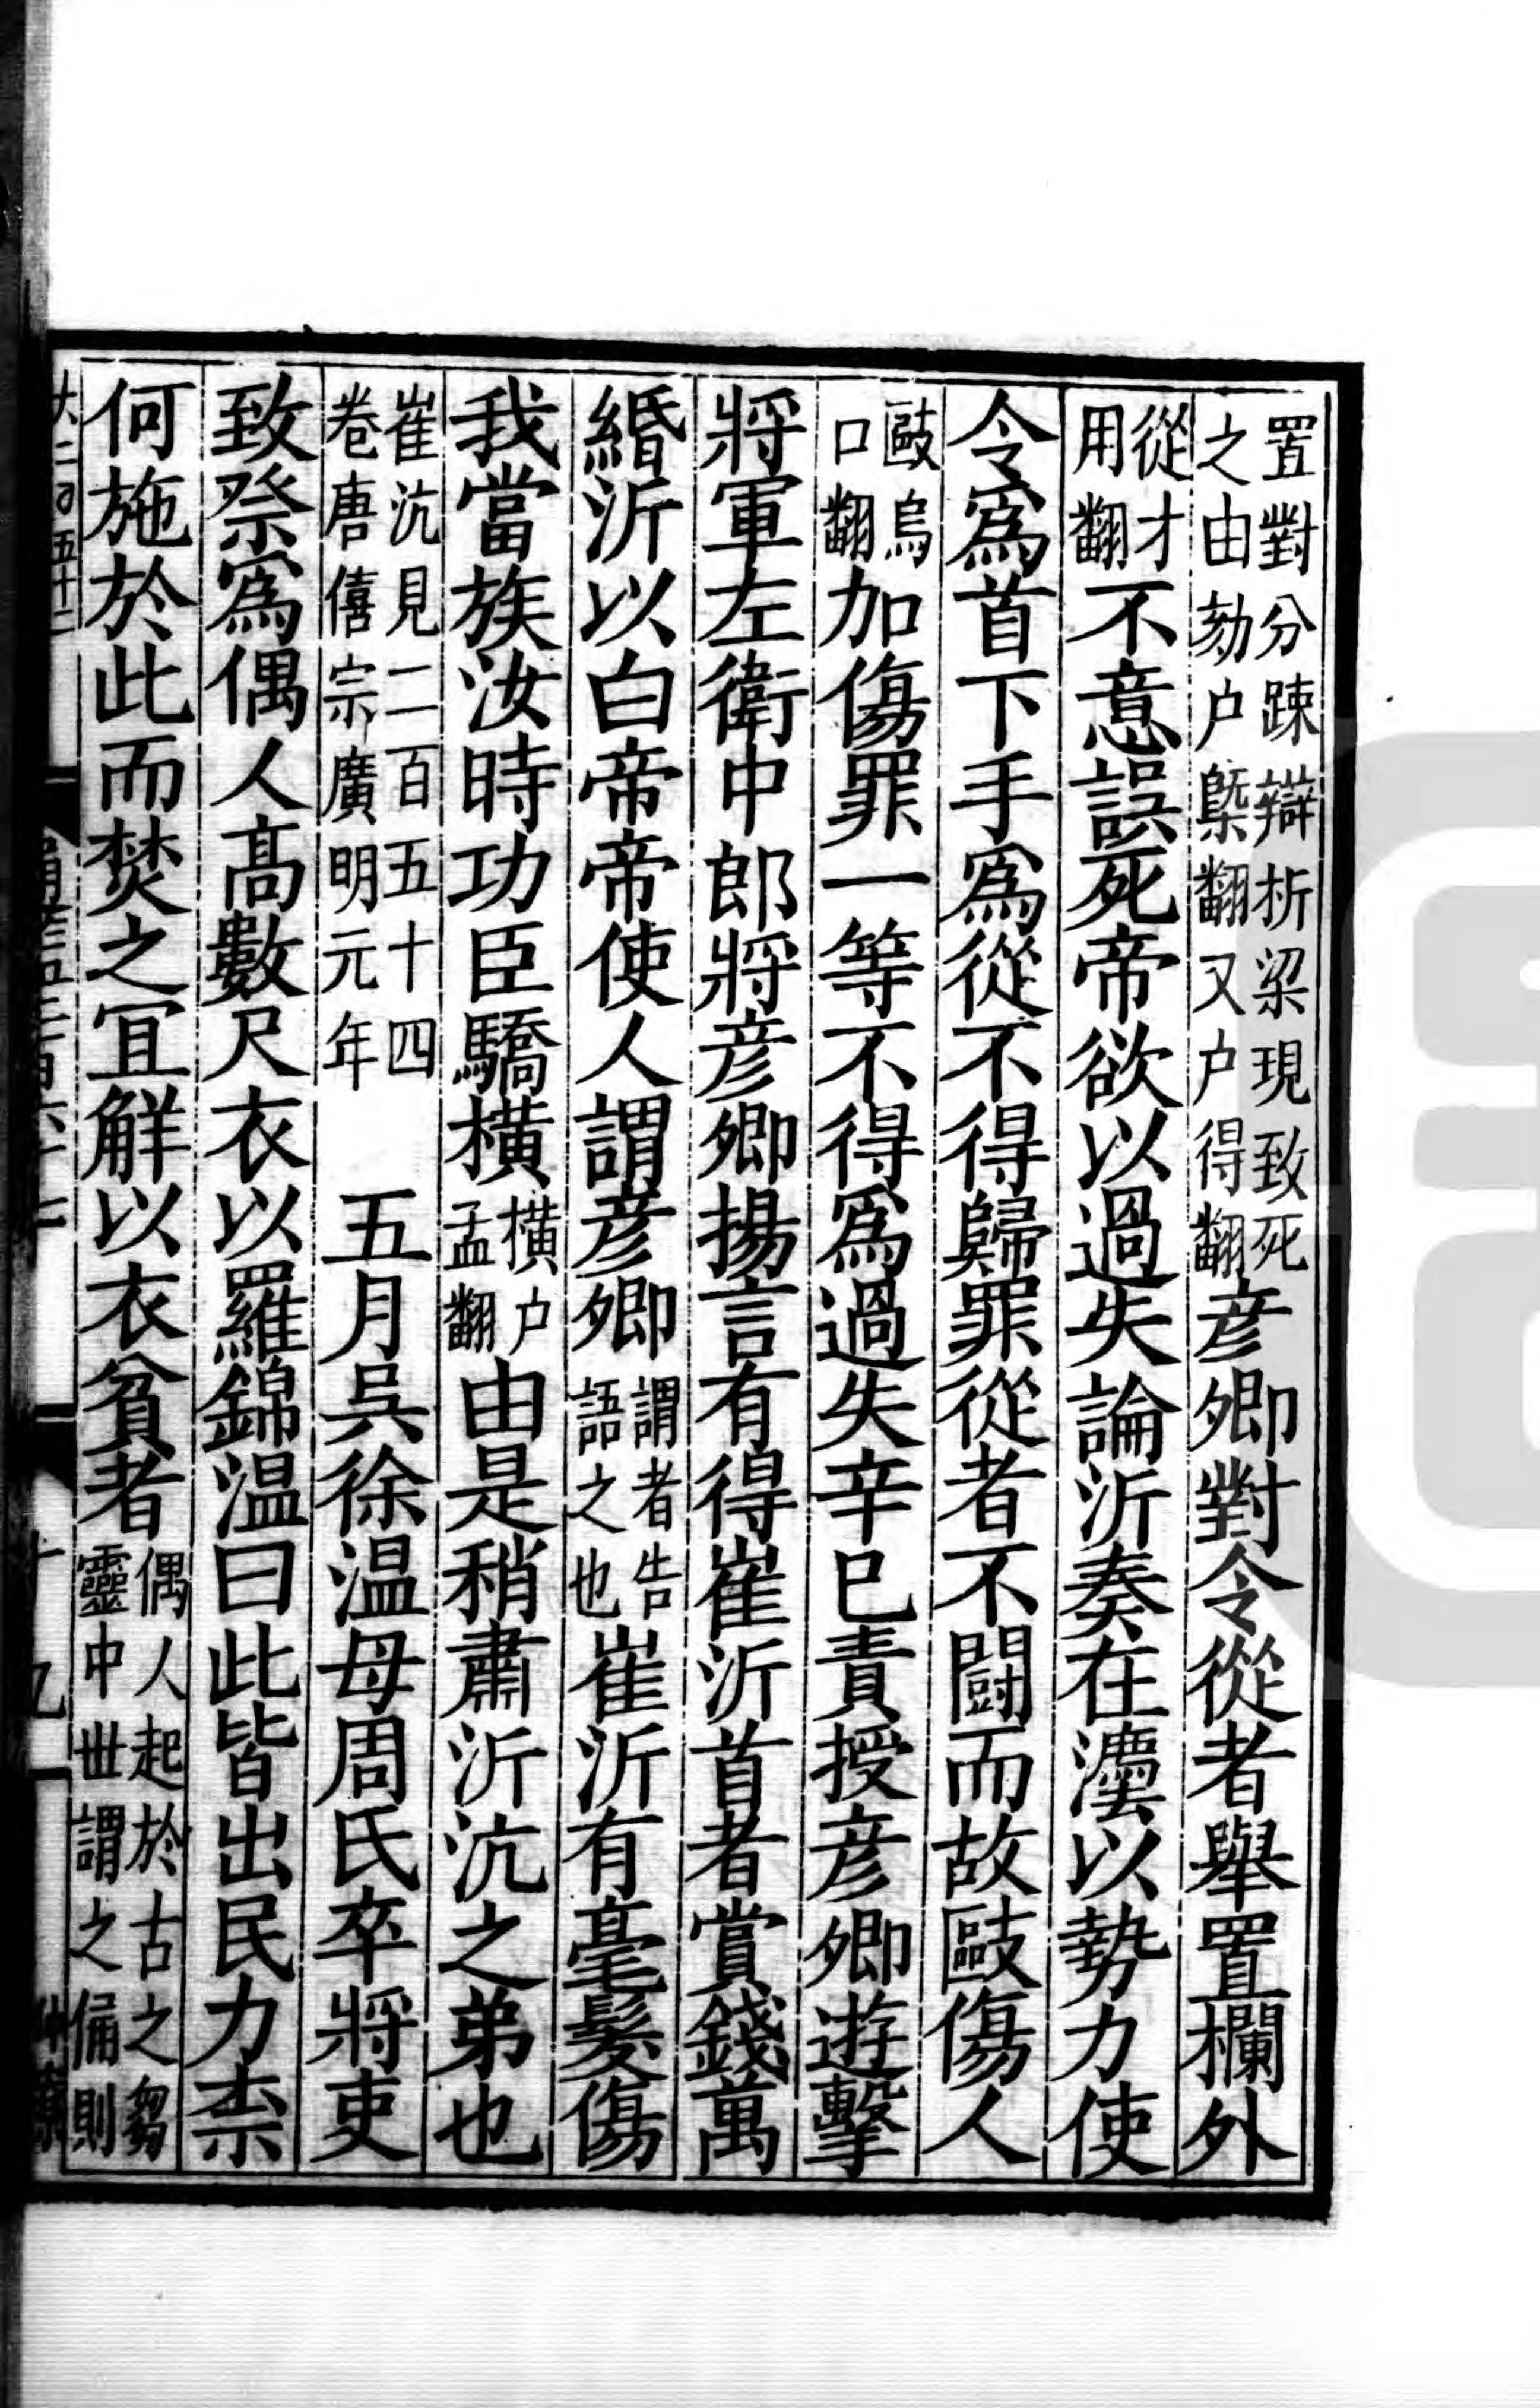 置對分疎辯析梁現致死之由劾户槩翻又户得翻彦卿對令從者舉置欄外
從才用翻不意誤死帝欲以過失論沂奏在灋以勢力使
令爲首下手爲從不得歸罪從者不鬪而故毆傷人
毆烏口翻加傷罪一等不得爲過失辛巳責授彦卿遊擊
將軍左衛中郎將彦卿揚言有得崔沂首者賞錢萬
緡沂以白帝帝使人謂彦卿謂者告語之也崔沂有毫髮傷
我當族汝時功臣驕横横户孟翻由是稍肅沂沆之弟也
崔沆見二百五十四卷唐僖宗廣明元年 五月吳徐温母周氏卒將吏
致祭爲偶人髙數尺衣以羅錦温曰此皆出民力柰
何施於此而焚之宜解以衣貧者偶人起於古之芻靈中世謂之俑則